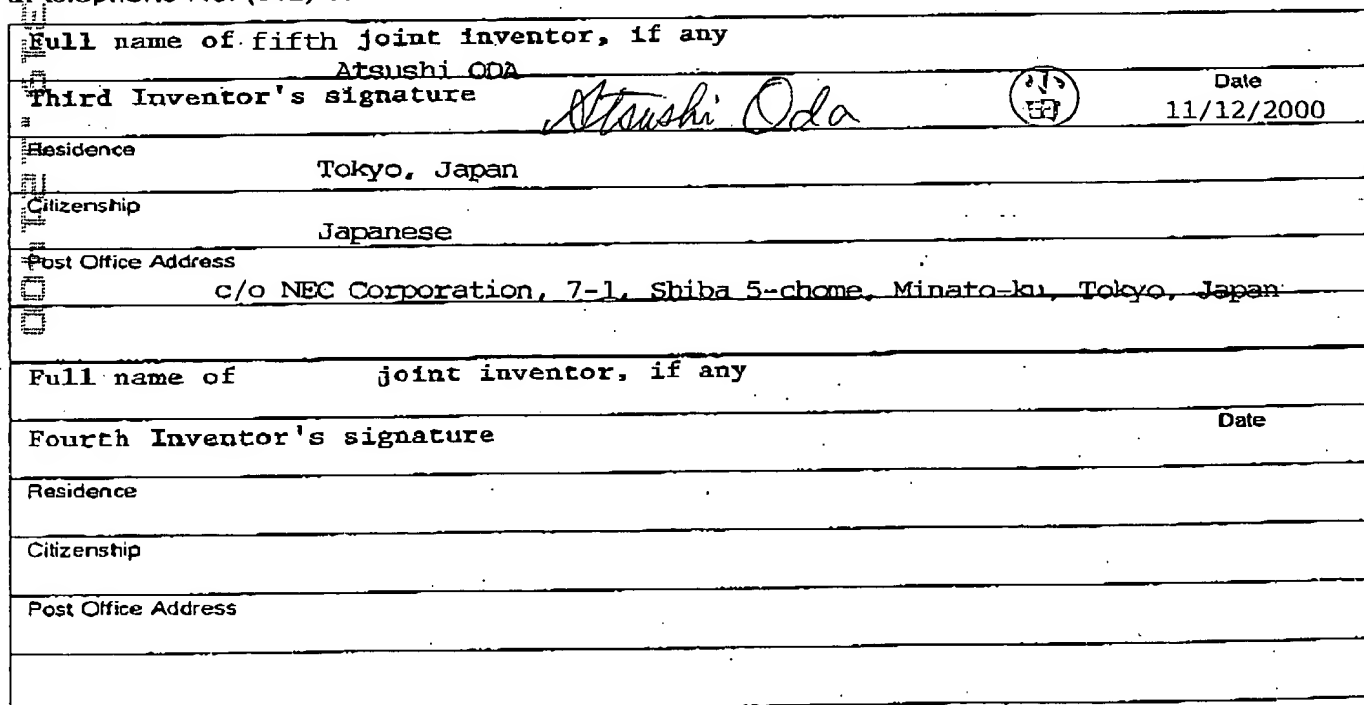 Full name of fifth joint inventor, if any
Atsushi ODA
Third Inventor's signature Atsushi Oda 小田 Date
11/12/2000
Residence
Tokyo, Japan
Citizenship
Japanese
Post Office Address
c/o NEC Corporation, 7-1, Shiba 5-chome, Minato-ku, Tokyo, Japan
Full name of joint inventor, if any
Fourth Inventor's signature Date
Residence
Citizenship
Post Office Address